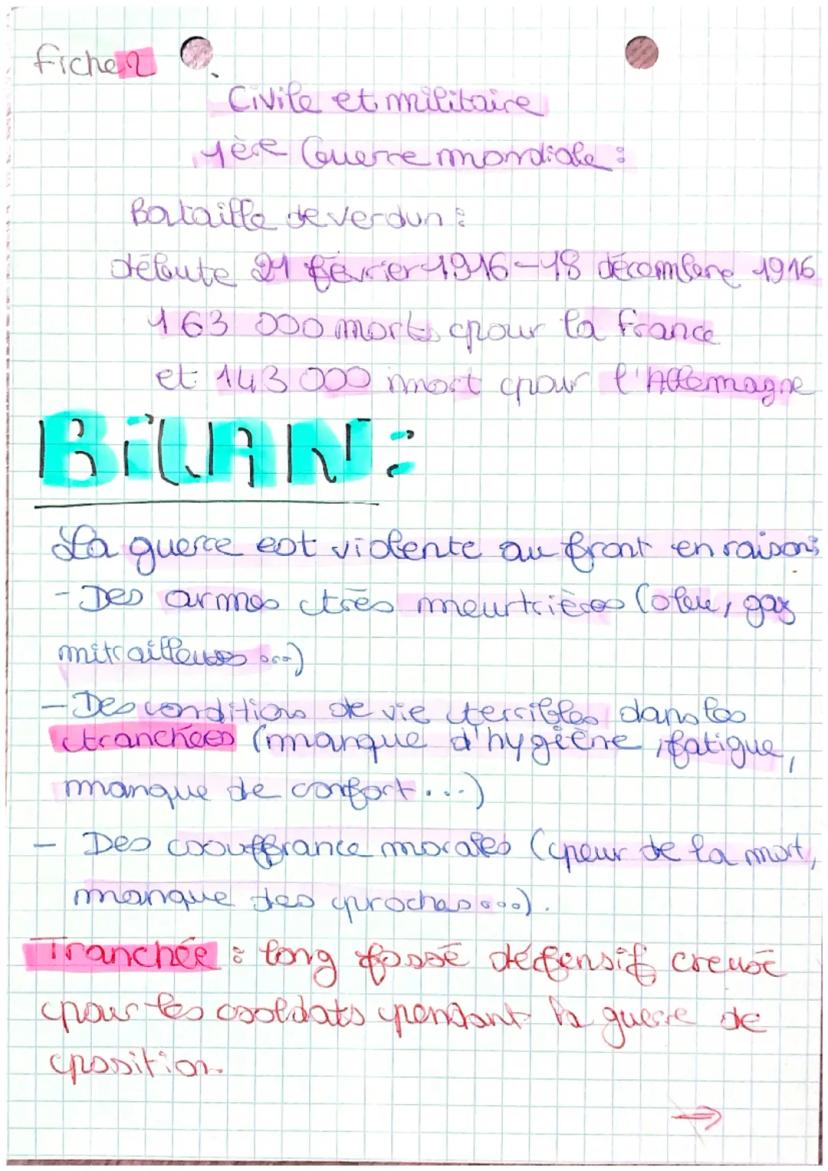 fiche 2
Civile et militaire
1ère Guerre mondiale :
Bataille de verdun :
débute 21 février 1916 - 18 décembre 1916
163 000 morts pour la france
et 143 000 mort pour l'Allemagne
BiLAN :
La guerre est violente au front en raison :
- Des armes très meurtrières (obus, gaz
mitrailleuses ...)
- Des condition de vie terribles dans les
tranchées (manque d'hygiène, fatigue,
manque de confort...)
- Des souffrance morales (peur de la mort,
manque des proches...).
Tranchée : long fossé défensif creusé
pour les soldats pendant la guerre de
position.
→